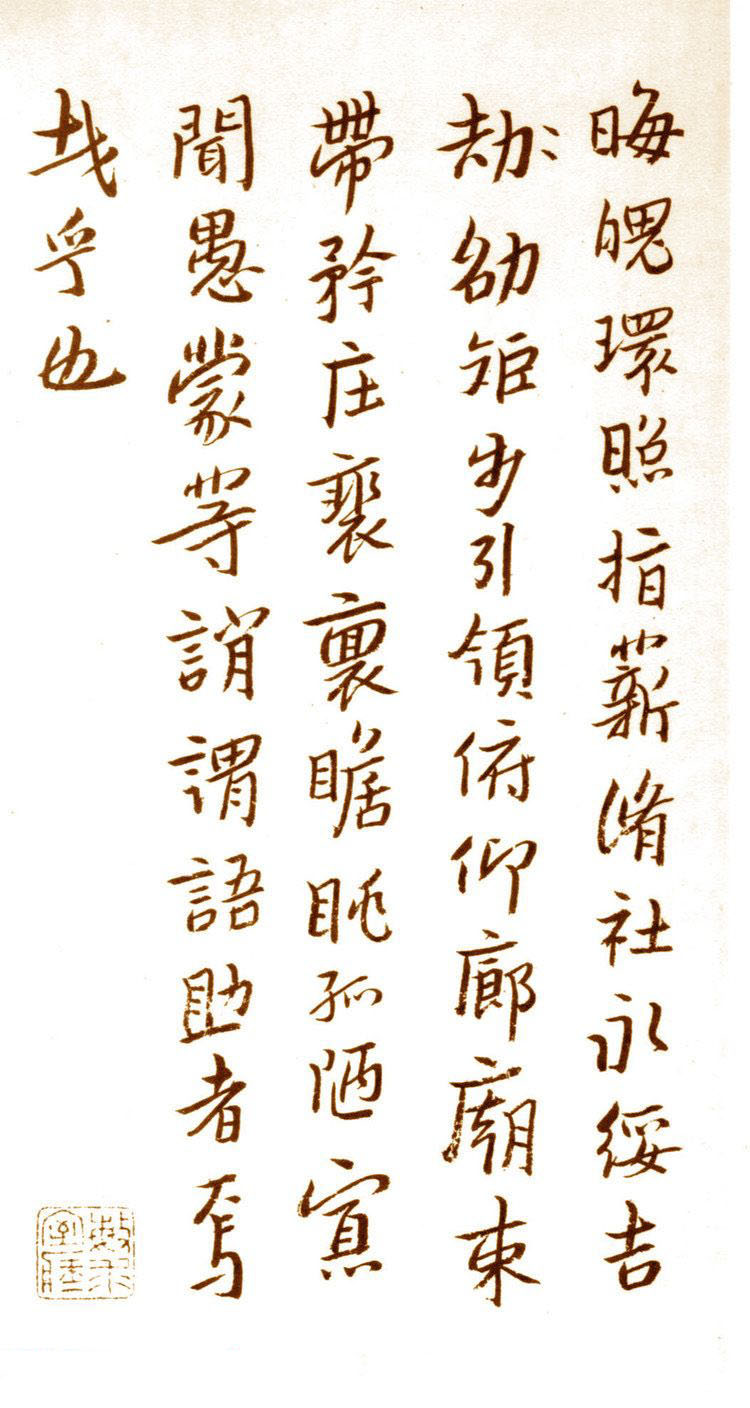 晦魄環照指薪脩社永綏吉
劫劭矩步引領俯仰廊廟束
帶矜庄裵瞻眺孤陋寡
聞愚蒙等誚謂語助者焉
哉乎也